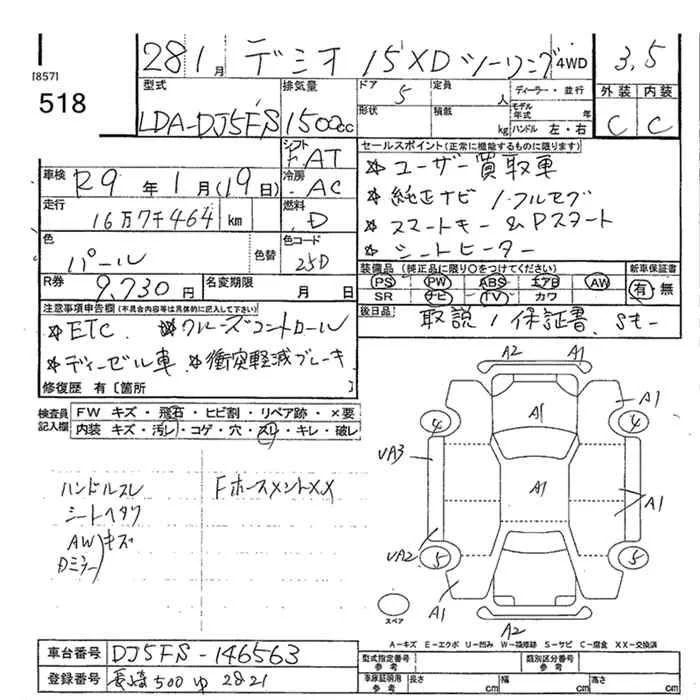 [857]
518
28 1月 デミオ 15XDツーリング 4WD 3.5
型式 LDA-DJ5FS
排気量 1500cc
ドア 5
定員 人
ディーラー・並行
形状
積載 kg
モデル年式 年
ハンドル 左・右
外装 C
内装 C
シフト FAT
セールスポイント(正常に機能するものに限ります)
☆ユーザー買取車
☆純正ナビ / フルセグ
☆スマートキー & Pスタート
☆シートヒーター
車検 R9年1月(19日)
冷房 AC
走行 16万7千464 km
燃料 D
色 パール
色替
色コード 25D
R券 9,730円
名変期限 月 日
装備品(純正品に限り○をつけてください)
PS PW ABS エアB AW
SR ナビ TV カワ
新車保証書 有 無
後日品 取説 / 保証書、Sキー
注意事項申告欄(不具合内容等は具体的に記入して下さい)
☆ETC ☆クルーズコントロール
☆ディーゼル車 ☆衝突軽減ブレーキ
修復歴 有〔箇所 〕
検査員記入欄
FW キズ・飛石・ヒビ割・リペア跡・×要
内装 キズ・汚レ・コゲ・穴・スレ・キレ・破レ
ハンドルスレ
シートヘタリ
AW キズ
Dミラー
FホースメントXX
A2 A1
A1 A1
4 4
UA3
A1 A1
UA2
5 5
A1
A2
スペア
A-キズ E-エクボ U-凹み W-補修跡 S-サビ C-腐食 XX-交換済
車台番号 DJ5FS-146563
登録番号 長崎 500 ゆ 2821
型式指定番号 参考
類別区分番号 参考
車庫証明用 参考 長さ cm 幅 cm 高さ cm